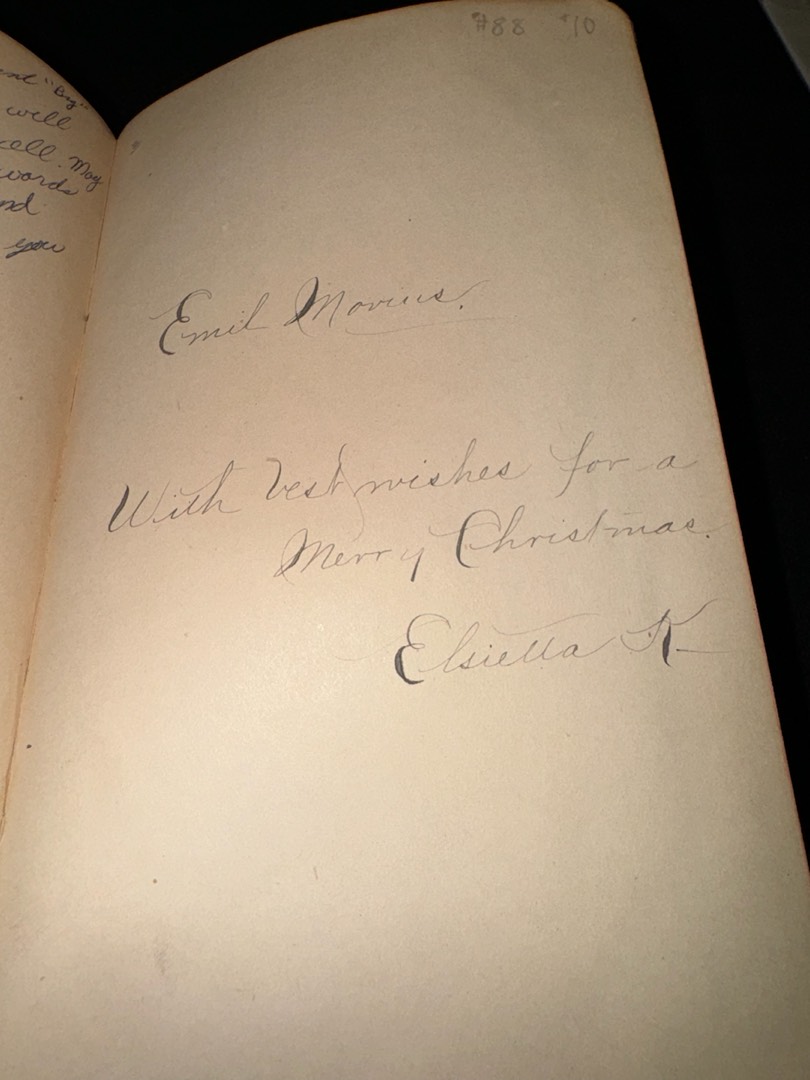 and "Big"
will
cell. May
words
nd
you
#88 $10
Emil Movius.
With best wishes for a
Merry Christmas.
Elsietta K.